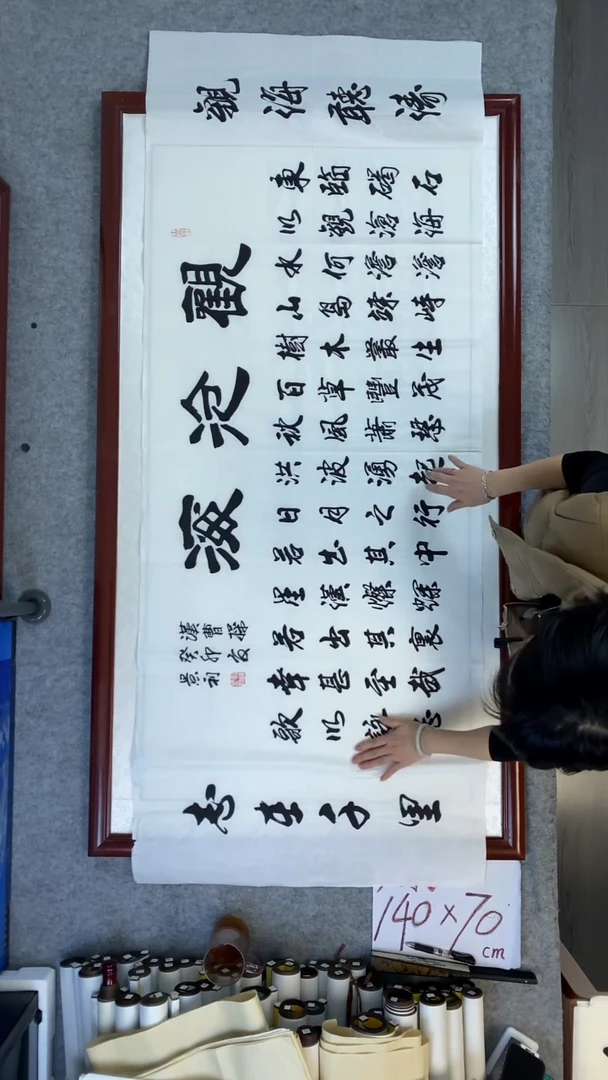 觀海聽濤
觀滄海
東臨碣石
以觀滄海
水何澹澹
山島竦峙
樹木叢生
百草豐茂
秋風蕭瑟
洪波湧起
日月之行
若出其中
星漢燦爛
若出其裏
幸甚至哉
歌以詠志
漢曹操
癸卯
景利
志在千里
140×70
cm